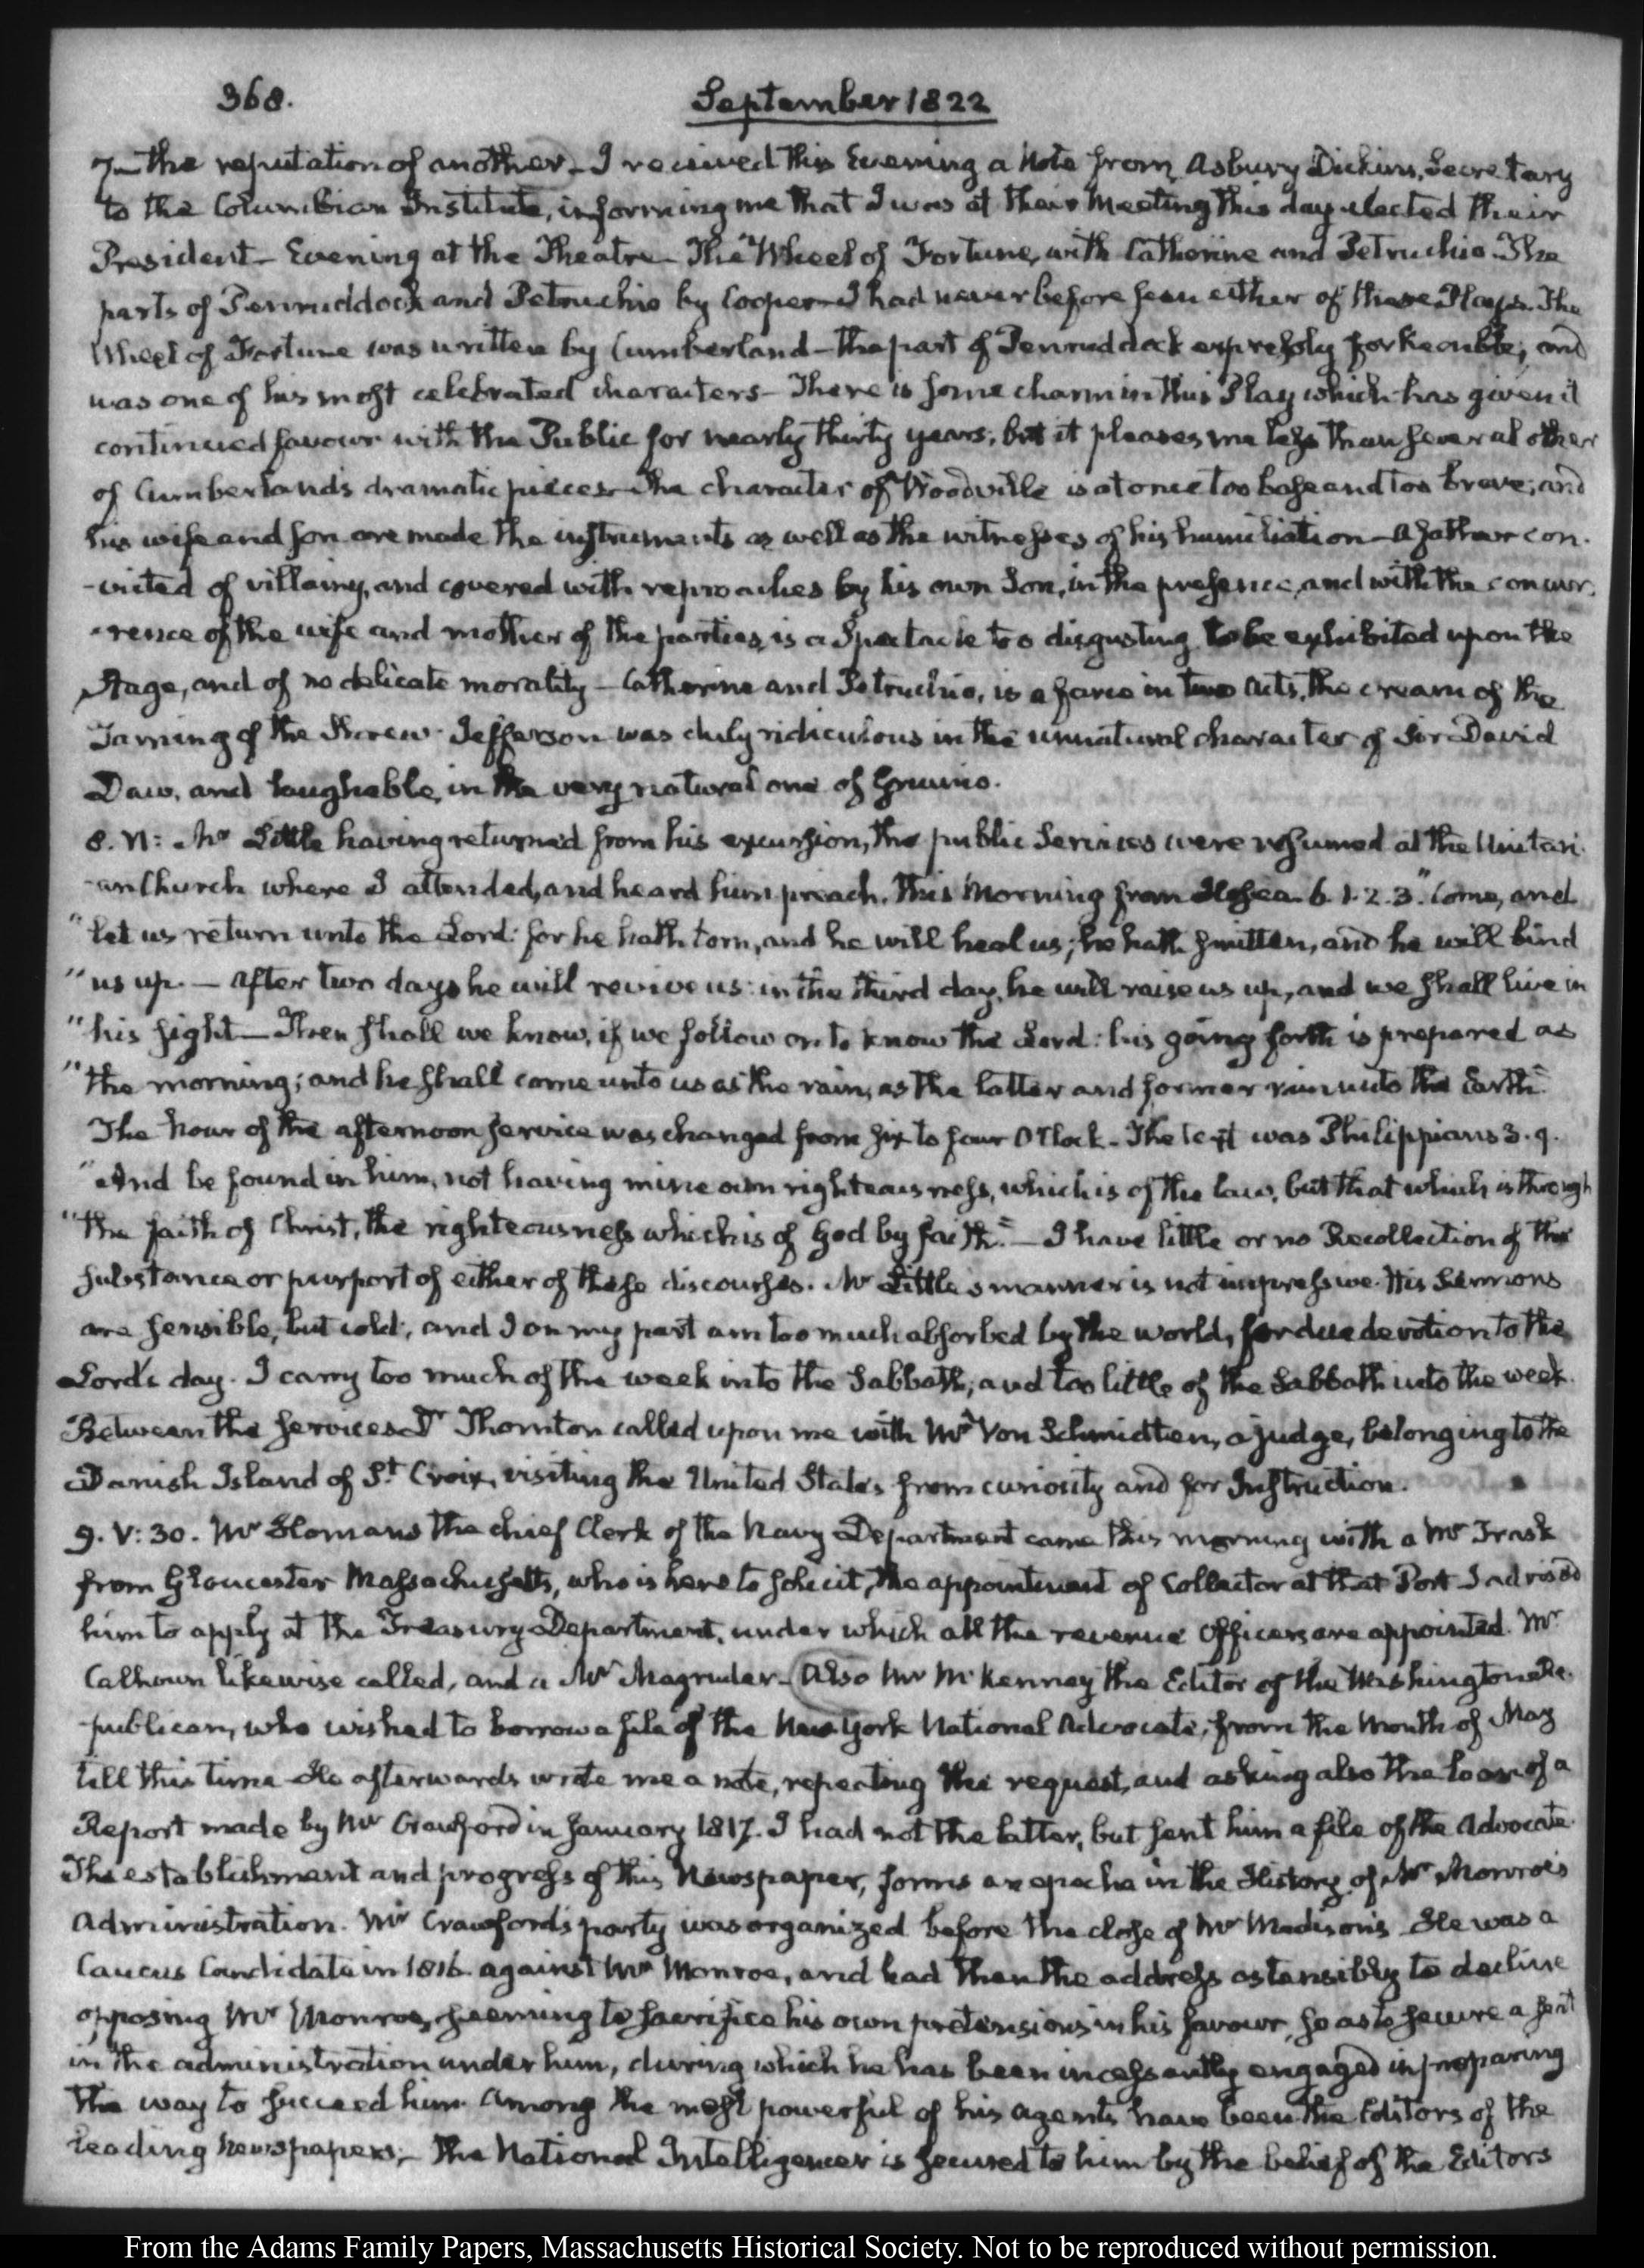 368.
September 1822
In the reputation of another_ I received this Evening a Note from Asbury Dickins, Secretary
to the Columbian Institute, informing me that I was at their Meeting this day elected their
President_ Evening at the Theatre_ The Wheel of Fortune, with Catherine and Petruchio. The
parts of Penruddock and Petruchio by Cooper_ I had never before seen either of these Plays. The
Wheel of Fortune was written by Cumberland_ the part of Penruddock expressly for Kemble; and
was one of his most celebrated characters_ There is some charm in this Play which has given it
continued favour with the Public for nearly thirty years; but it pleases me less than several other
of Cumberland's dramatic pieces_ The character of Woodville is at once too base and too brave; and
his wife and son are made the instruments as well as the witnesses of his humiliation_ A father con-
-victed of villainy, and covered with reproaches by his own Son, in the presence, and with the concur-
-rence of the wife and mother of the parties, is a Spectacle too disgusting to be exhibited upon the
Stage, and of no delicate morality_ Catherine and Petruchio, is a farce in two Acts, the cream of the
Taming of the Shrew. Jefferson was duly ridiculous in the unnatural character of Sir David
Daw, and laughable, in the very natural one of Grumio.
8. VI: Mr Little having returned from his excursion, the public Services were resumed at the Unitari-
-an Church where I attended, and heard him preach. This Morning from Hosea. 6. 1. 2. 3. "Come, and
"let us return unto the Lord: for he hath torn, and he will heal us; he hath smitten, and he will bind
"us up._ After two days he will revive us: in the third day, he will raise us up, and we shall live in
"his sight_ Then shall we know, if we follow on to know the Lord: his going forth is prepared as
"the morning; and he shall come unto us as the rain, as the latter and former rain unto the Earth."
The hour of the afternoon service was changed from six to four O'Clock_ The text was Philippians 3. 9.
"And be found in him, not having mine own righteousness, which is of the law, but that which is through
"the faith of Christ, the righteousness which is of God by faith."_ I have little or no Recollection of the
substance or purport of either of these discourses. Mr Little's manner is not impressive. His Sermons
are sensible, but cold; and I on my part am too much absorbed by the world, for due devotion to the
Lord's day. I carry too much of the week into the Sabbath; and too little of the Sabbath into the week.
Between the services Dr Thornton called upon me with Mr Von Schmidten, a judge, belonging to the
Danish Island of St Croix, visiting the United States from curiosity and for Instruction.
9. V: 30. Mr Homans the chief Clerk of the Navy Department came this morning with a Mr Trask
from Gloucester Massachusetts, who is here to solicit, the appointment of Collector at that Port_ I advised
him to apply at the Treasury Department, under which all the revenue Officers are appointed. Mr
Calhoun likewise called, and a Mr Magruder_ Also Mr McKenney the Editor of the Washington Re-
-publican, who wished to borrow a file of the New York National Advocate, from the Month of May
till this time_ He afterwards wrote me a note, repeating the request, and asking also the loan of a
Report made by Mr Crawford in January 1817. I had not the latter, but sent him a file of the Advocate.
The establishment and progress of this Newspaper, forms an epocha in the History of Mr Monroe's
Administration. Mr Crawford's party was organized before the close of Mr Madison's_ He was a
Caucus Candidate in 1816. against Mr Monroe, and had then the address ostensibly to decline
opposing Mr Monroe, seeming to sacrifice his own pretensions in his favour, so as to secure a seat
in the administration under him, during which he has been incessantly engaged in preparing
the way to succeed him. Among the most powerful of his agents have been the Editors of the
leading Newspapers;_ The National Intelligencer is secured to him by the belief of the Editors
From the Adams Family Papers, Massachusetts Historical Society. Not to be reproduced without permission.